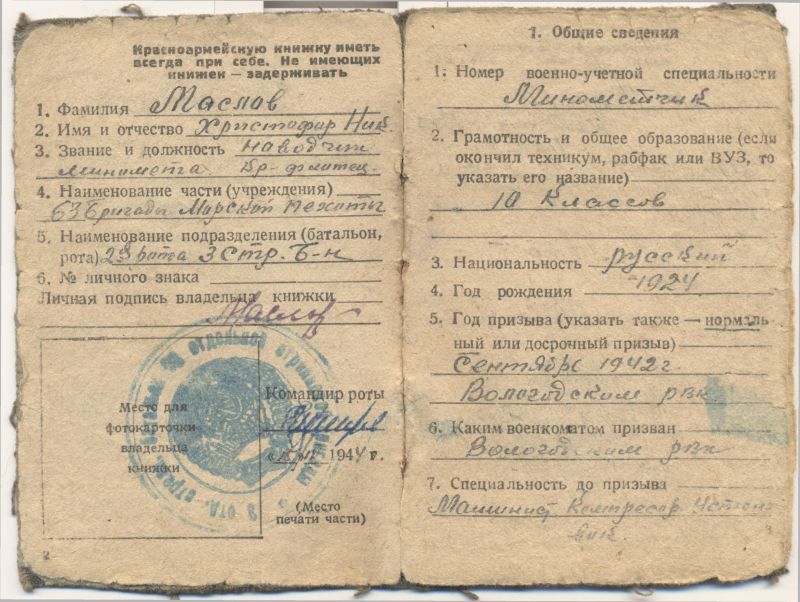 Красноармейскую книжку иметь
всегда при себе. Не имеющих
книжек — задерживать
1. Фамилия Маслов
2. Имя и отчество Христофор Ник.
3. Звание и должность наводчик
миномета
4. Наименование части (учреждения)
63 Бригады Морской пехоты
5. Наименование подразделения (батальон,
рота) 3 Стр. Б-н
6. № личного знака
Личная подпись владельца книжки
Маслов
Место для
фотокарточки
владельца
книжки
Командир роты
1944 г.
(Место
печати части)
2
1. Общие сведения
1. Номер военно-учетной специальности
Минометчик
2. Грамотность и общее образование (если
окончил техникум, рабфак или ВУЗ, то
указать его название)
10 классов
3. Национальность русский
4. Год рождения 1924
5. Год призыва (указать также — нормаль
ный или досрочный призыв)
Сентябрь 1942 г.
Вологодским рвк
6. Каким военкоматом призван
Вологодским рвк
7. Специальность до призыва
Машинист
3